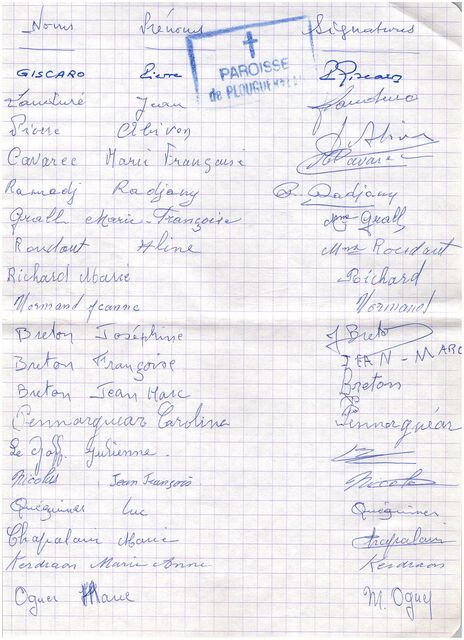 Noms Prénoms Signatures
PAROISSE
de PLOUGUERNEAU
GISCARD Pierre P Giscard
Jean
Pierre Abivon Abivon
Cavarec Marie Françoise Cavarec
Ramadj Radjany R. Radjany
Grall Marie-Françoise Mme Grall
Roudaut Aline Mme Roudaut
Richard Marie Richard
Normand Jeanne Normand
Breton Joséphine J Breto
Breton Françoise JEAN-MARC
Breton Jean Marc Breton
Pennarguear Carolina Pennarguéar
Le Goff Julienne.
Nicolas Jean François Nicolas
Quéguiner Luc Quéguiner
Chapalain Marie Chapalain
Kerdraon Marie Anne Kerdraon
Oguer Marie M. Oguer